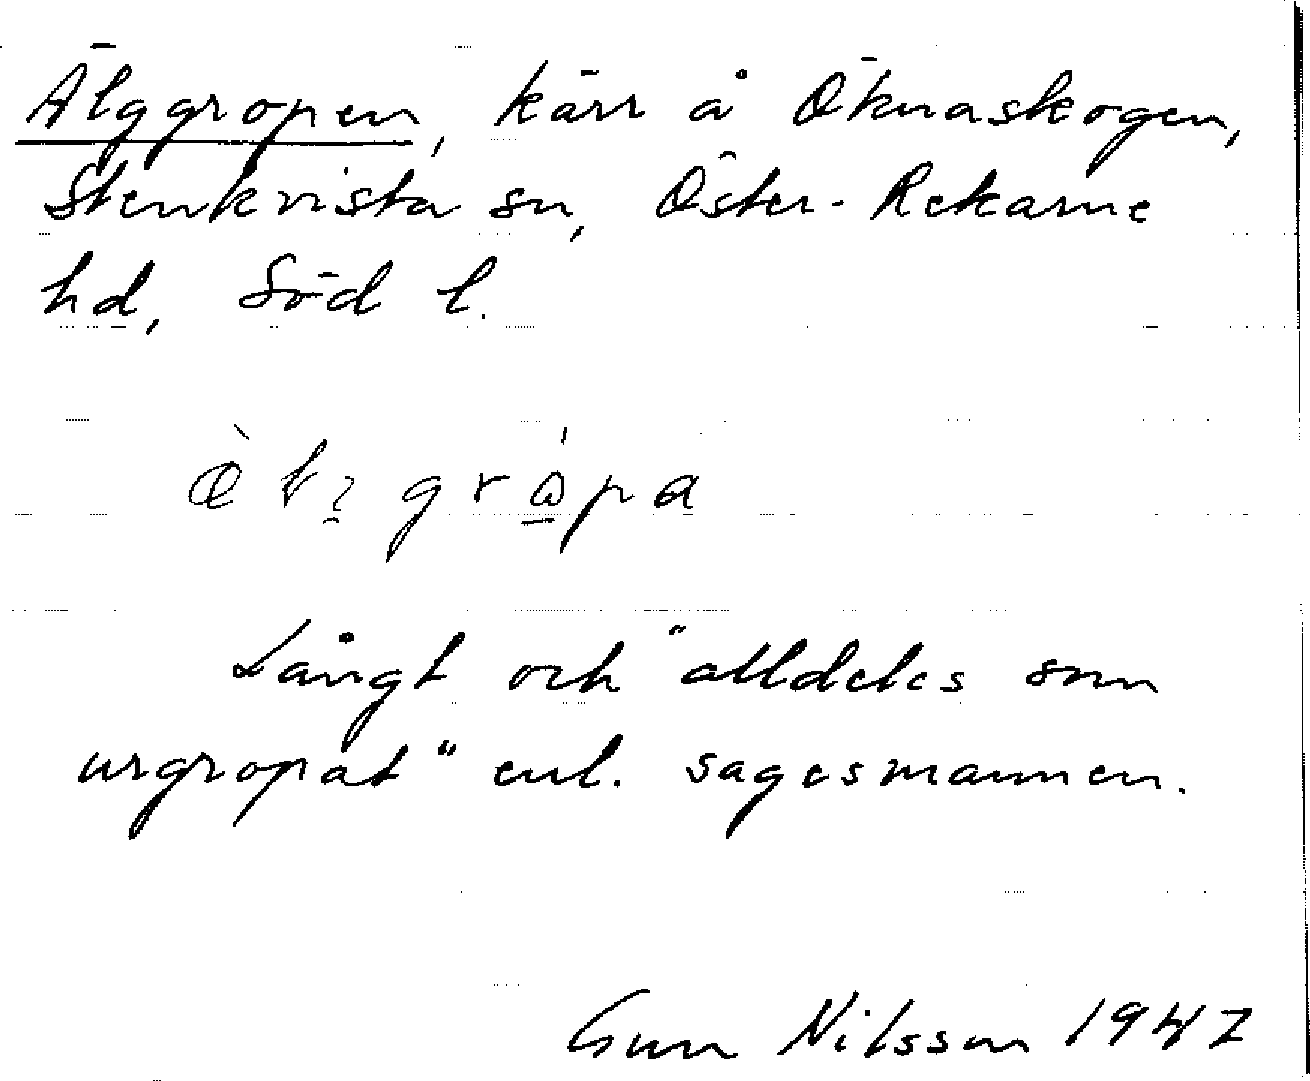 Älggropen, kärr å Öknaskogen,
Stenkvista sn, Öster-Rekarne
hd, Söd l.
Långt och "alldeles som
urgropat" enl. sagesmannen.
Gun Nilsson 1947